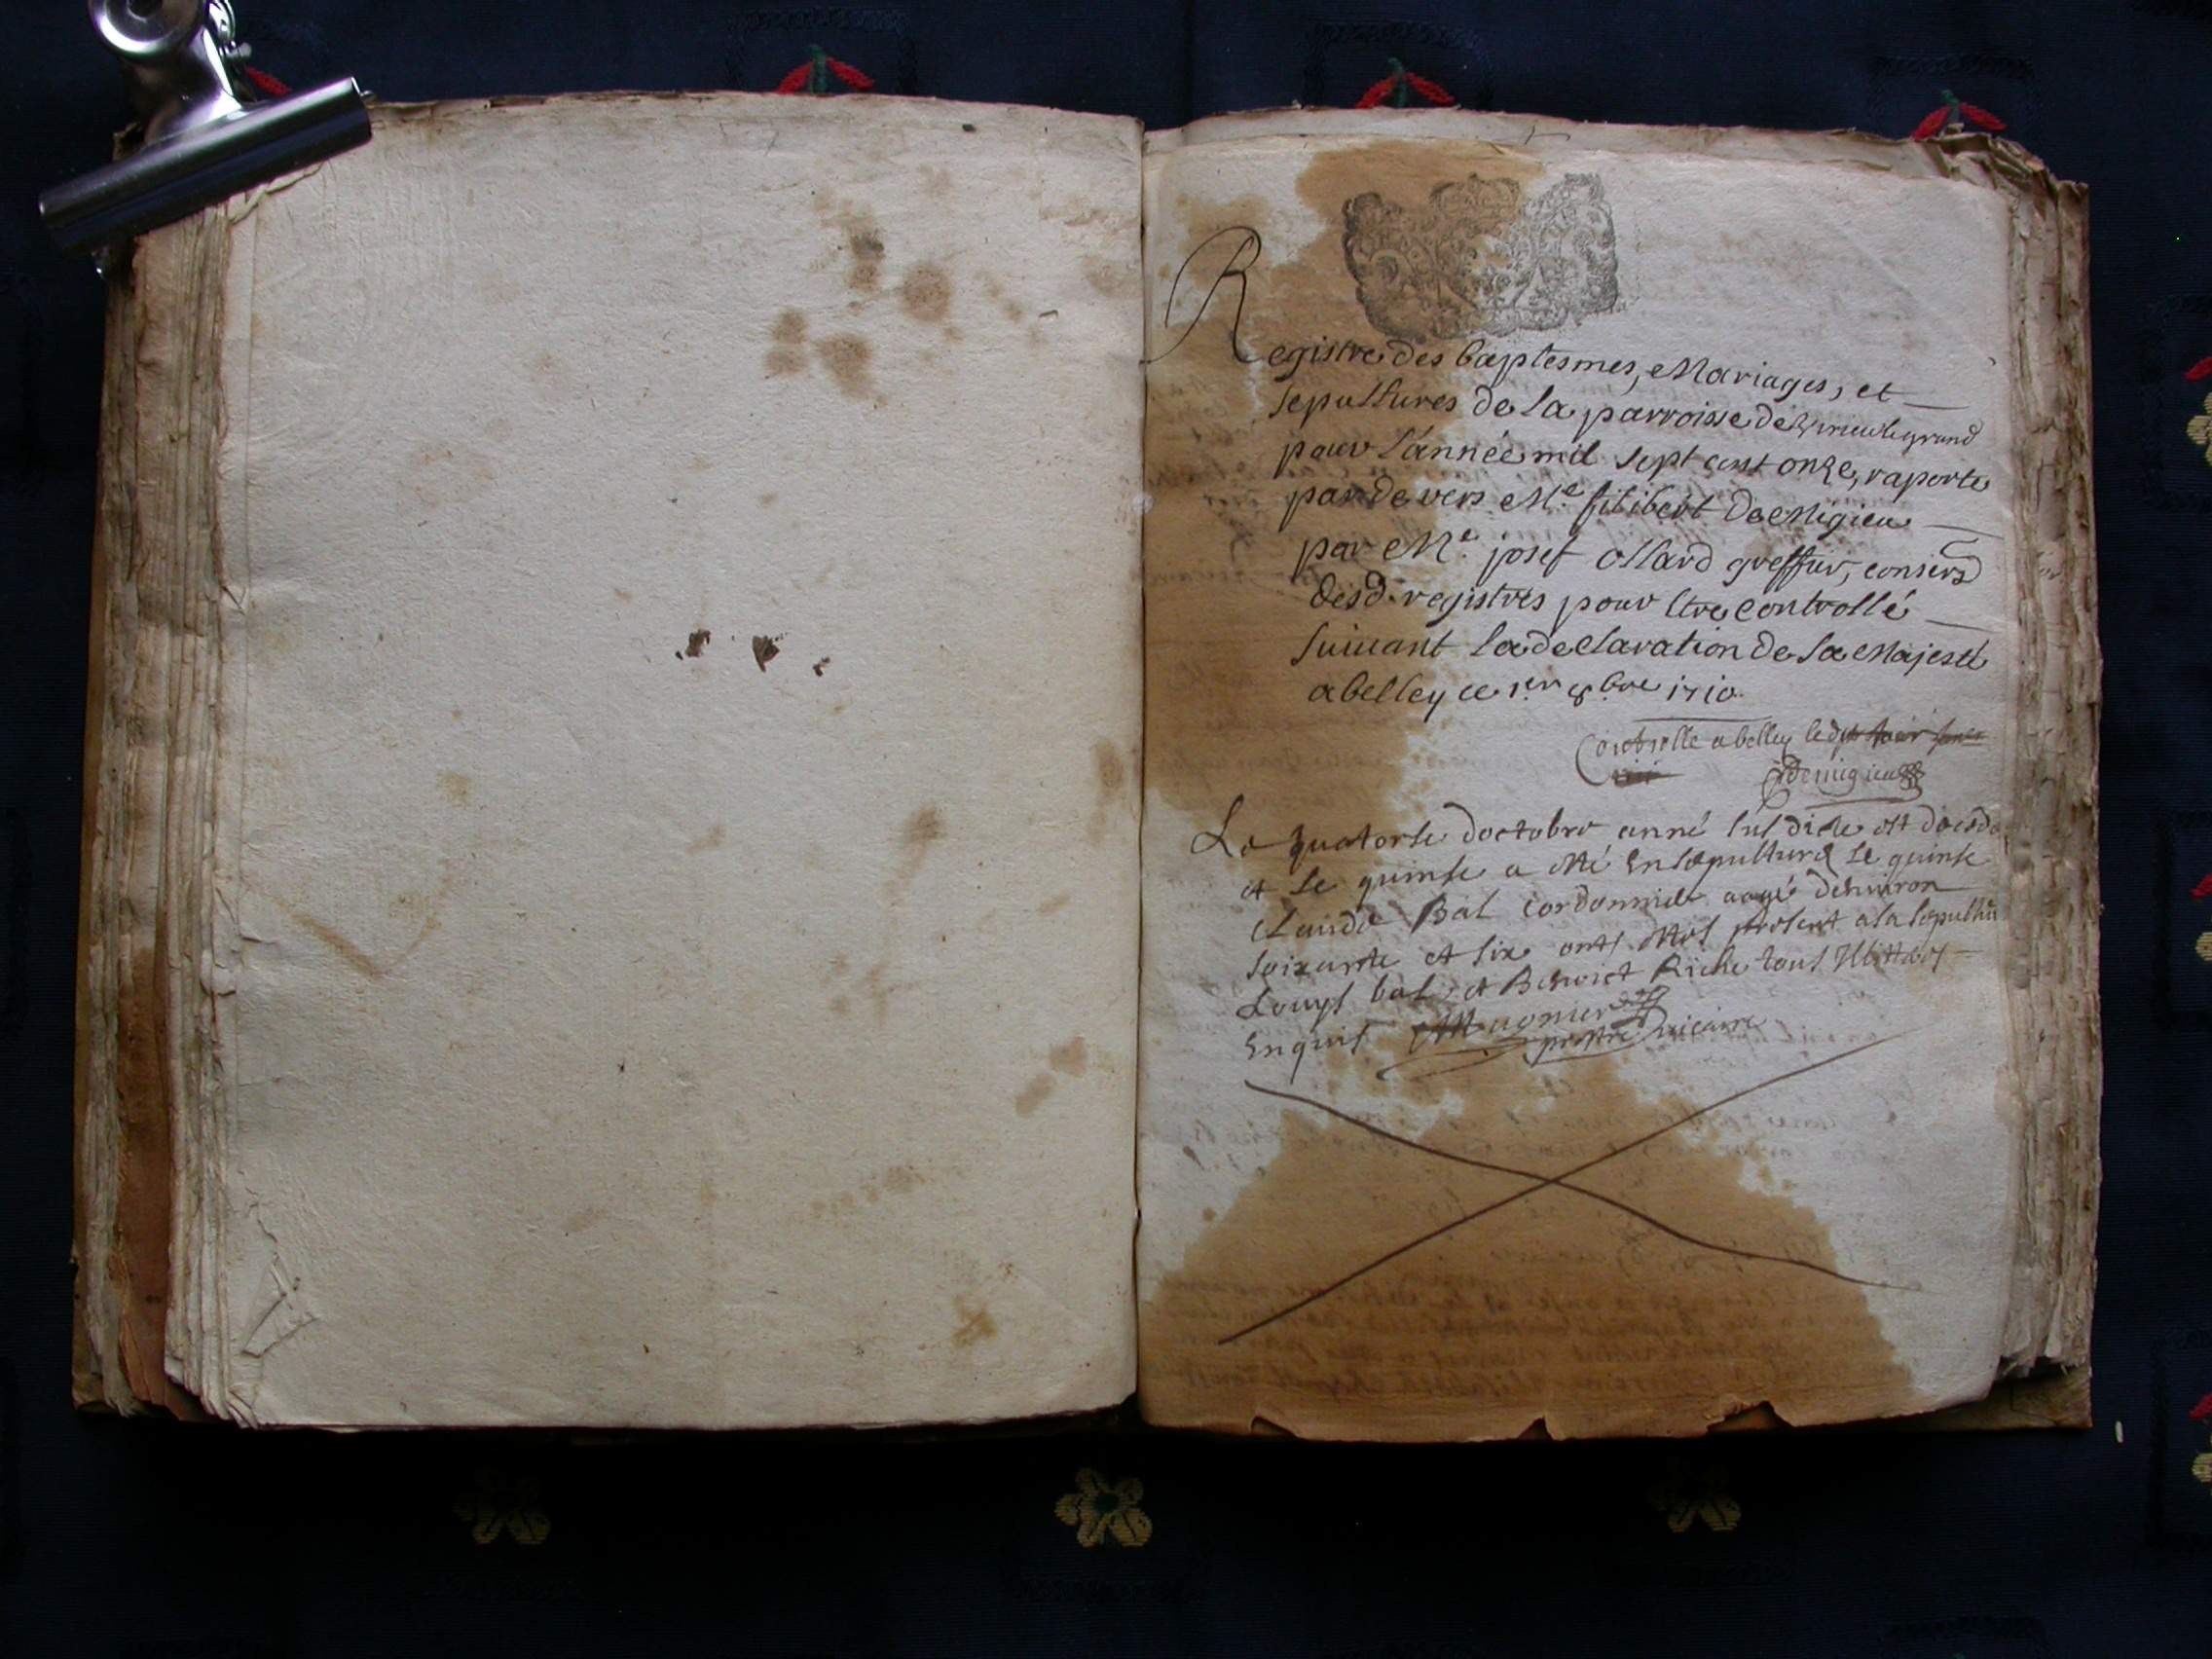 Registre des baptesmes, Mariages, et
sepultures de la parroisse de Virieu le grand
pour l'année mil sept cent onze, raporte
par de vers Me. filibert De Migieu
par Me. josef ollard greffier, conserv
desd. registres pour Etre controllé
suiuant la declaration de sa Majesté
a belley ce 1er 8bre 1710.
Controlle a belley le
Demigieu
Le quatorse doctobre anné sus dicte est decede
et le quinse a esté Ensepulturé
Claude Bal cordonnier aagé denuiron
soixante et six ants presents a la sepulture
Louys bal, et Benoict Riche tous Illitteres
Enquis Mugnier
prestre vicaire